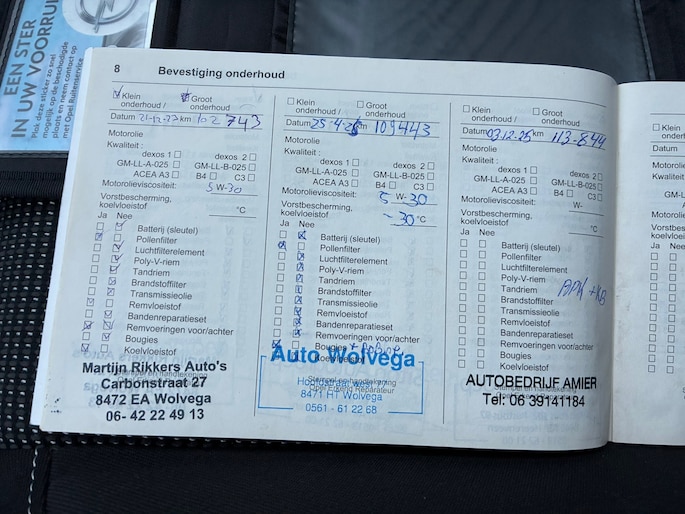 EEN STER
IN UW VOORRUIT
Plak deze sticker zo snel
mogelijk op de beschadigde
plaats en neem contact op
met Opel Ruitenservice
8 Bevestiging onderhoud
Klein onderhoud / Groot onderhoud
Datum 21-12-23 km 102743
Motorolie
Kwaliteit :
dexos 1 dexos 2
GM-LL-A-025 GM-LL-B-025
ACEA A3 B4 C3
Motorolieviscositeit:
5 W-30
Vorstbescherming,
koelvloeistof °C
Ja Nee
Batterij (sleutel)
Pollenfilter
Luchtfilterelement
Poly-V-riem
Tandriem
Brandstoffilter
Transmissieolie
Remvloeistof
Bandenreparatieset
Remvoeringen voor/achter
Bougies
Koelvloeistof
Martijn Rikkers Auto's
Carbonstraat 27
8472 EA Wolvega
06- 42 22 49 13
Klein onderhoud / Groot onderhoud
Datum 25 4 25 km 109443
Motorolie
Kwaliteit :
dexos 1 dexos 2
GM-LL-A-025 GM-LL-B-025
ACEA A3 B4 C3
Motorolieviscositeit:
5 W-30
Vorstbescherming,
koelvloeistof -30 °C
Ja Nee
Batterij (sleutel)
Pollenfilter
Luchtfilterelement
Poly-V-riem
Tandriem
Brandstoffilter
Transmissieolie
Remvloeistof
Bandenreparatieset
Remvoeringen voor/achter
Bougies
Koelvloeistof
Auto Wolvega
Hoofdstraat West
8471 HT Wolvega
0561 - 61 22 68
Klein onderhoud / Groot onderhoud
Datum 03.12.25 km 113-844
Motorolie
Kwaliteit :
dexos 1 dexos 2
GM-LL-A-025 GM-LL-B-025
ACEA A3 B4 C3
Motorolieviscositeit:
W-
Vorstbescherming,
koelvloeistof °C
Ja Nee
Batterij (sleutel)
Pollenfilter
Luchtfilterelement
Poly-V-riem
Tandriem APK + KB
Brandstoffilter
Transmissieolie
Remvloeistof
Bandenreparatieset
Remvoeringen voor/achter
Bougies
Koelvloeistof
AUTOBEDRIJF AMIER
Tel: 06 39141184
Klein
onderhoud
Datum
Motorolie
Kwaliteit :
Ja Nee